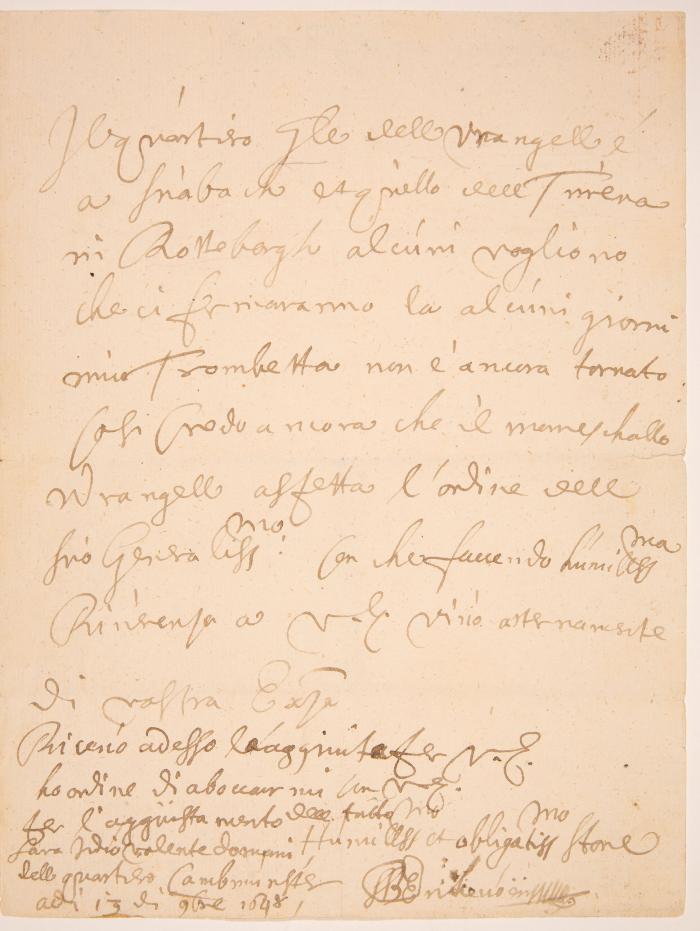 Il quartiro Gle dell Vrangell é
a Suabach et quello dell Turena
in Rotteborgh alcuni vogliono
che ci fermaranno la alcuni giorni
mio Trombetta non é ancora tornato
cosi Credo ancora che il mareschallo
Wrangell aspetta l'ordine dell
suo Generalissmo: Con che facendo humillssma
Riverensa a V.E. vivo
di vostra Exza
adesso per V.E.
ho ordine di aboccarmi con V.E.
per l'aggiustamento dell tutto
sara Idio volente domani Humillssmo et obligatissmo
dell quartiro
adi 13 di 9bre 1648